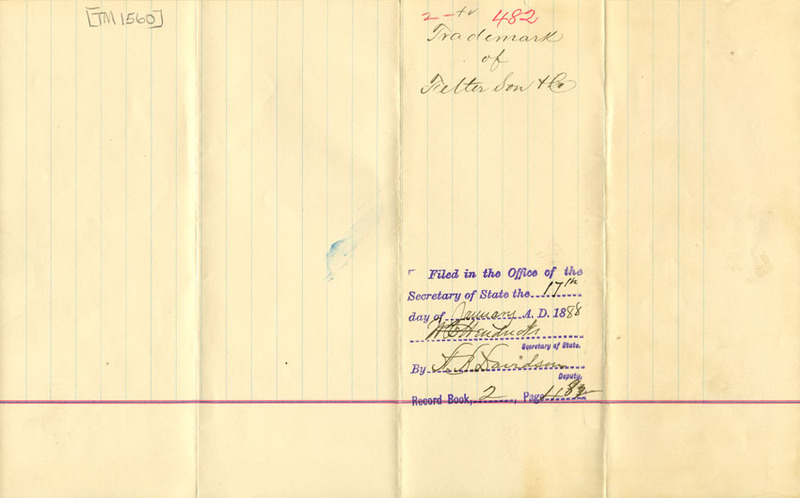 [TM 1560]
2 - 482
Trademark
of
Felter Son & Co
Filed in the Office of the
Secretary of State the 17th
day of January A. D. 1888
W C Hendricks
Secretary of State.
By A. R. Davidson
Deputy.
Record Book, 2, Page 482